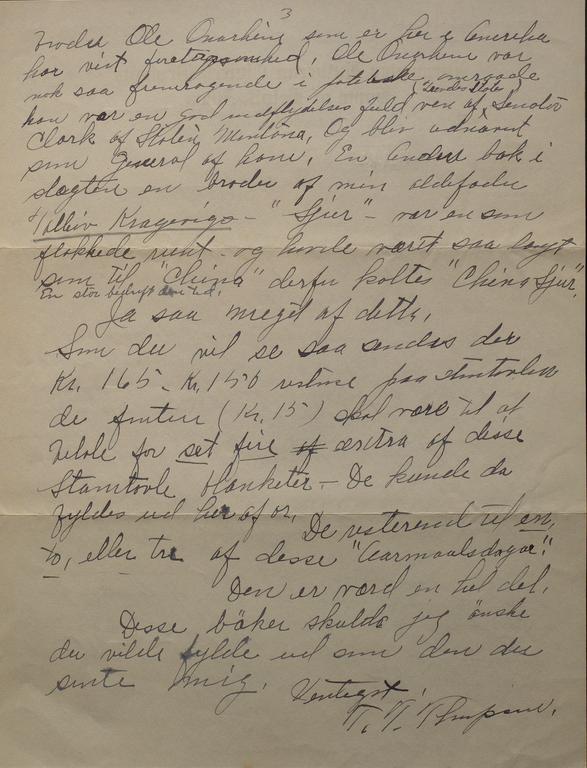 3
broder Ole Quarheim som er her i Amerika
har vist foretagsomhed, Ole Quarheim var
nok saa fremragende i
(Landes Skole)
han var en god indflydelses fuld ven af Senator
Clark af Staten Montana, Og bliv udnævnt
som General af hans, En anden bok i
slægten en broder af min oldefader
Kragevigs - "Sjur" - var en som
flakkede rundt - og havde været saa langt
som til "China" derfor kaltes "China Sjur".
En stor bedrift den tid.
Ja saa meget af dette,
Som du vil se saa sendes der
Kr. 165 - Kr. 150 paa stamtavlen
de femten (Kr. 15) skal være til at
betale for set fire af exstra af disse
Stamtavle blanketer - De kunde da
fyldes ud her af os,
De resterend til en,
to, eller tre af disse "Aarmaalsdagar".
Den er værd en hel del,
Disse bøker skulde jeg ønske
du vilde fylde ud som den du
sente mig.
Venligst,
T. T. Thompson.